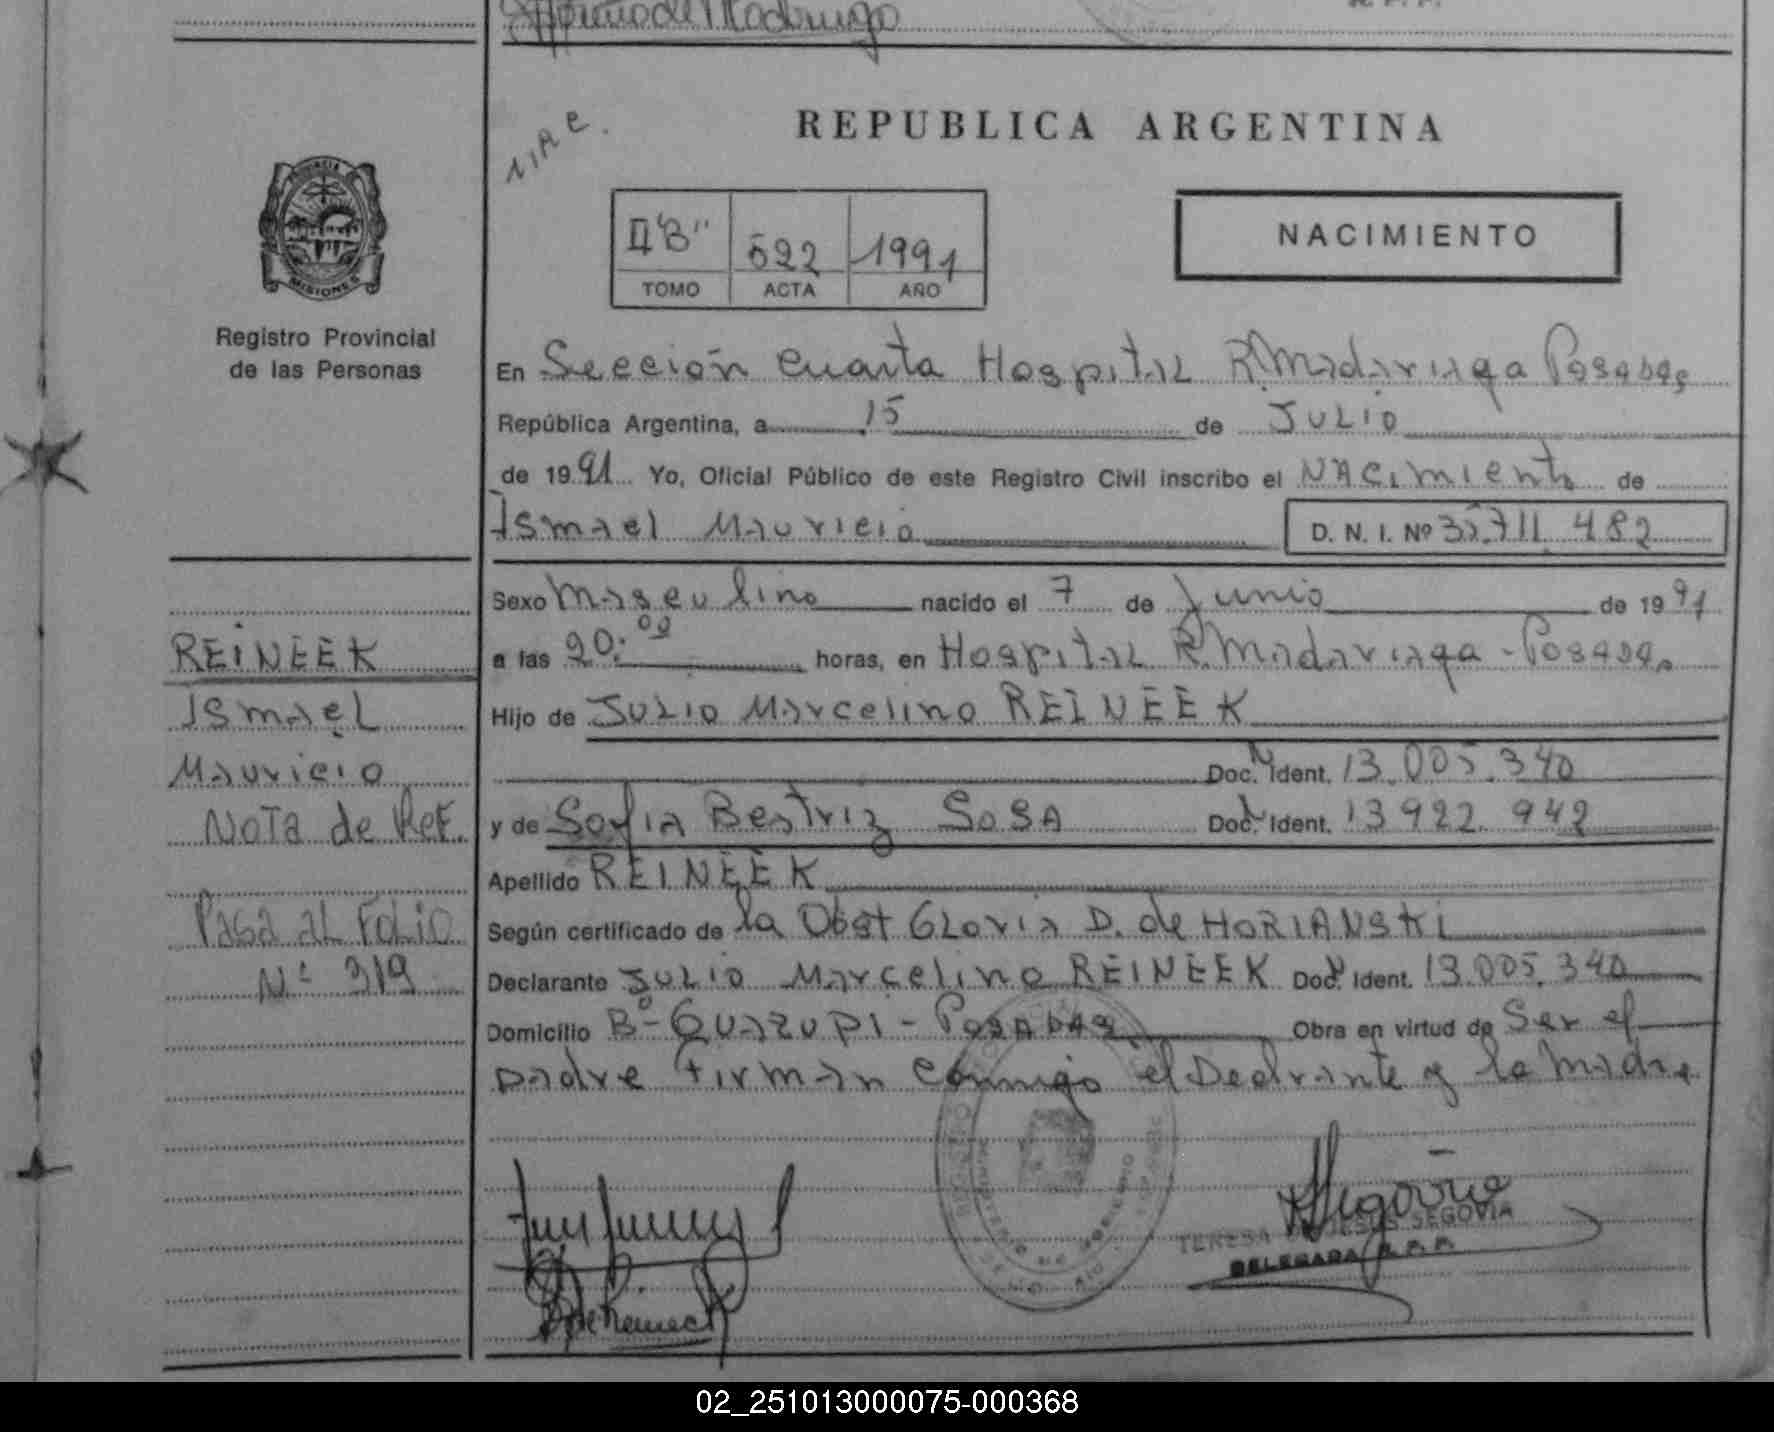 de Madrugo
REPUBLICA ARGENTINA
PROVINCIA
MISIONES
Registro Provincial
de las Personas
II "B" 522 1991
TOMO ACTA AÑO
NACIMIENTO
En Sección Cuarta Hospital R. Madariaga Posadas
República Argentina, a 15 de Julio
de 1991 Yo, Oficial Público de este Registro Civil inscribo el Nacimiento de
Ismael Mauricio D. N. I. Nº 35.711.482
Sexo Masculino nacido el 7 de Junio de 1991
a las 20:00 horas, en Hospital R. Madariaga - Posadas
Hijo de Julio Marcelino REINEEK
Doc. Ident. 13.005.340
y de Sofia Beatriz SOSA Doc. Ident. 13922.942
Apellido REINEEK
Según certificado de la Obst Gloria D. de HORIANSKI
Declarante Julio Marcelino REINEEK Doc. Ident. 13.005.340
Domicilio Bº- Guazupi - Posadas Obra en virtud de Ser el
padre Firman conmigo el Declrante y la Madre
REINEEK
Ismael
Mauricio
Nota de Ref.
Pasa al Folio
Nº 319
Segovia
TERESA DE JESUS SEGOVIA
DELEGADA R.P.P.
02_251013000075-000368